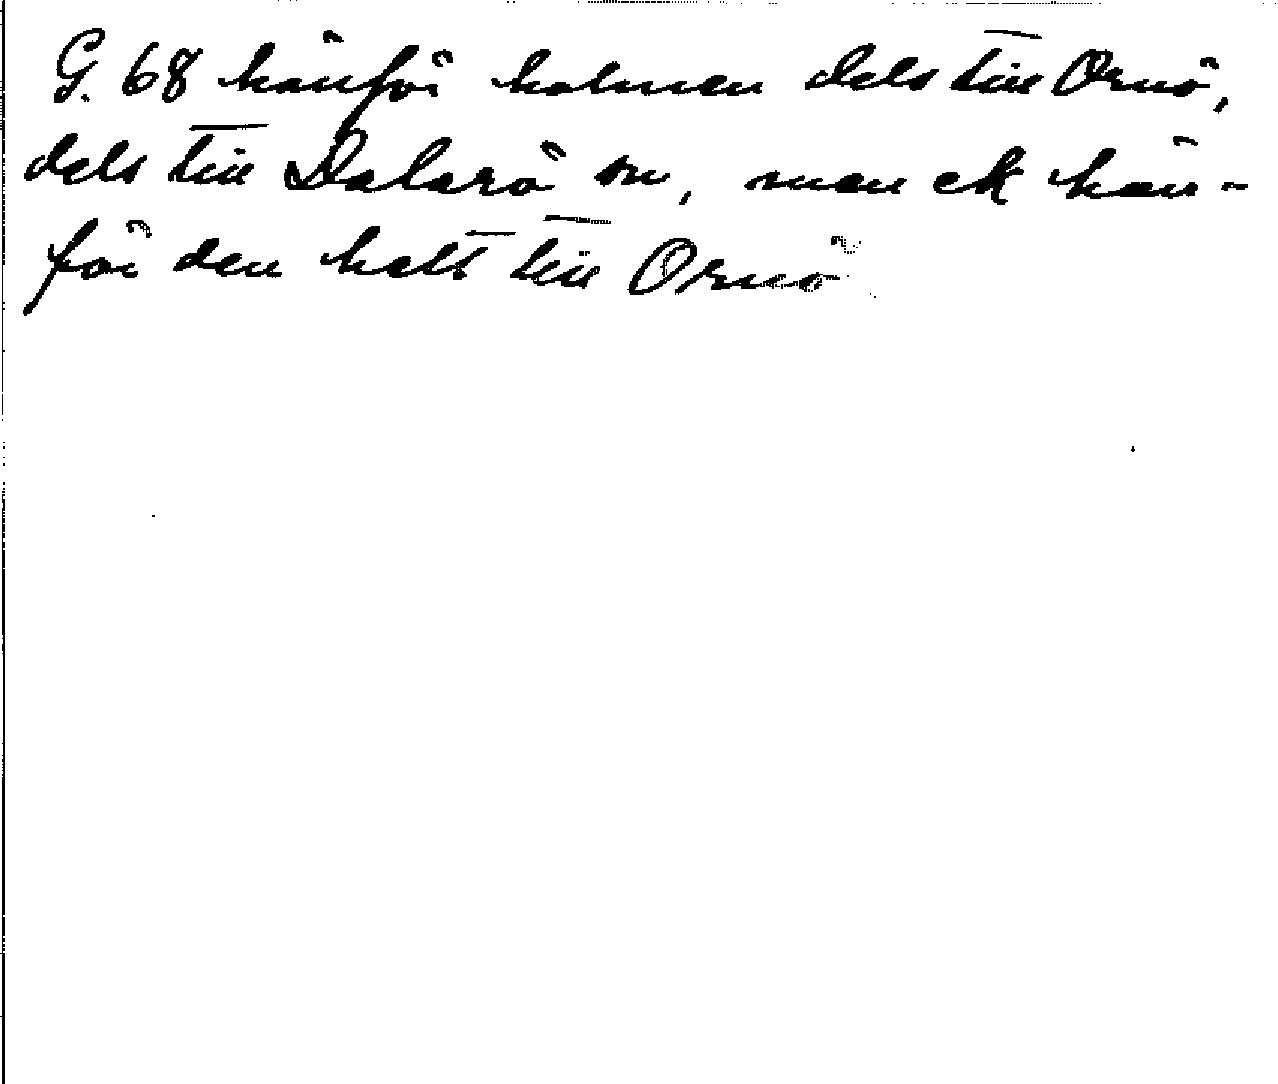 G. 68 hänför holmen dels till Ornö,
dels till Dalarö sn, men ek hän-
för den helt till Ornö